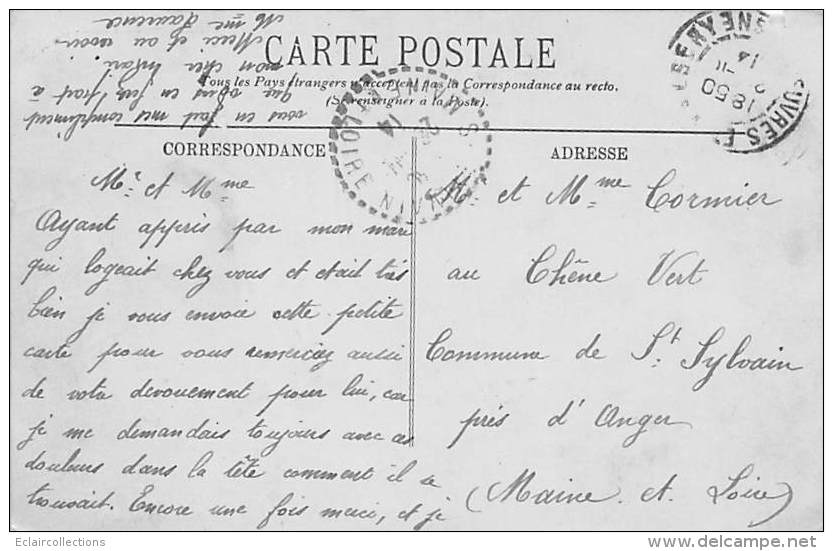 CARTE POSTALE
Tous les Pays étrangers n'acceptent pas la Correspondance au recto.
(Se renseigner à la Poste).
CORRESPONDANCE
Mr et Mme
Ayant appris par mon mari
qui logeait chez vous et etait très
bien je vous envoie cette petite
carte pour vous remerciez aussi
de votre devouement pour lui, car
je me demandais toujours avec ces
douleurs dans la tête comment il se
trouvait. Encore une fois merci, et je
vous en fait mes compliment
que vous en fera part à
mon cher
Merci et au revoir
Mme Laurence
ADRESSE
M. et Mme Cormier
au Chêne Vert
Commune de St Sylvain
près d'Anger
(Maine et Loire)
18 50
2 - 11
14
LOIRE
14
Eclaircollections
www.delcampe.net